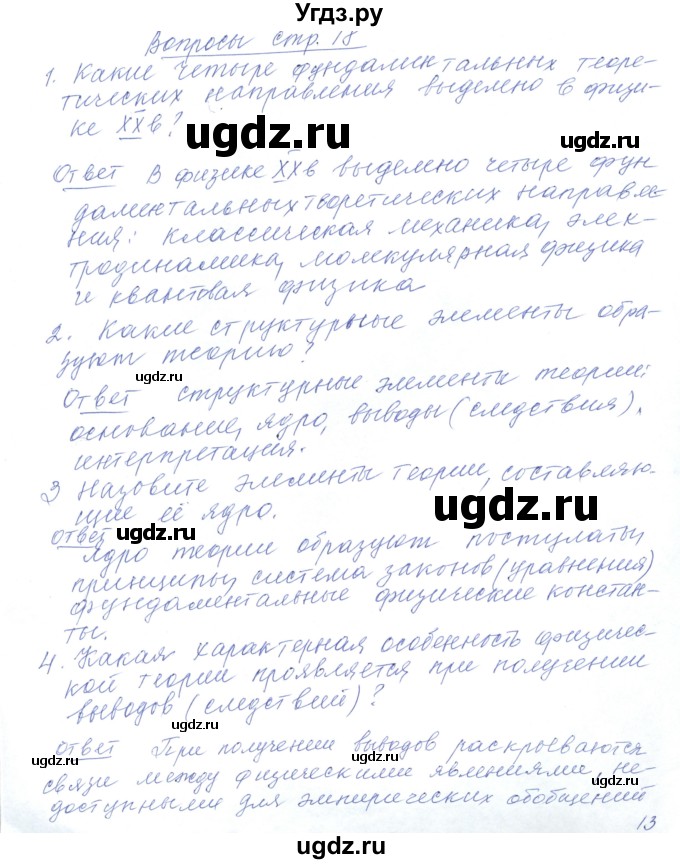 Угдз.ру
Вопросы стр. 18
1. Какие четыре фундаментальных теоре-
тических направления выделено в физи-
ке XXв?
ugdz.ru
ugdz.ru
Ответ В физике XXв выделено четыре фун
даментальных творетических направле-
ния: классическая механика, элек-
тродинамика, молекулярная физика
и квантовая физика
2. Какие структурные элементы обра-
зуют теорию?
ugdz.ru
Ответ структурные элементы теории:
основание, ядро, выводы (следствия),
интерпретация.
ugdz.ru
3 Назовите элементы теории, составляю-
щие её ядро.
ugdz.ru
ugdz.ru
Ответ
Ядро теории образуют постулаты
принципы, система законов (уравнения)
фундаментальные физические констан-
ты.
ugdz.ru
4. Какая характерная особенность физичес-
кой теории проявляется при получении
выводов (следствий)?
ugdz.ru
ugdz.ru
ответ При получении выводов раскрываются
связи между физическими явлениями, не-
доступными для эмпирических обобщений
ugdz.ru
13